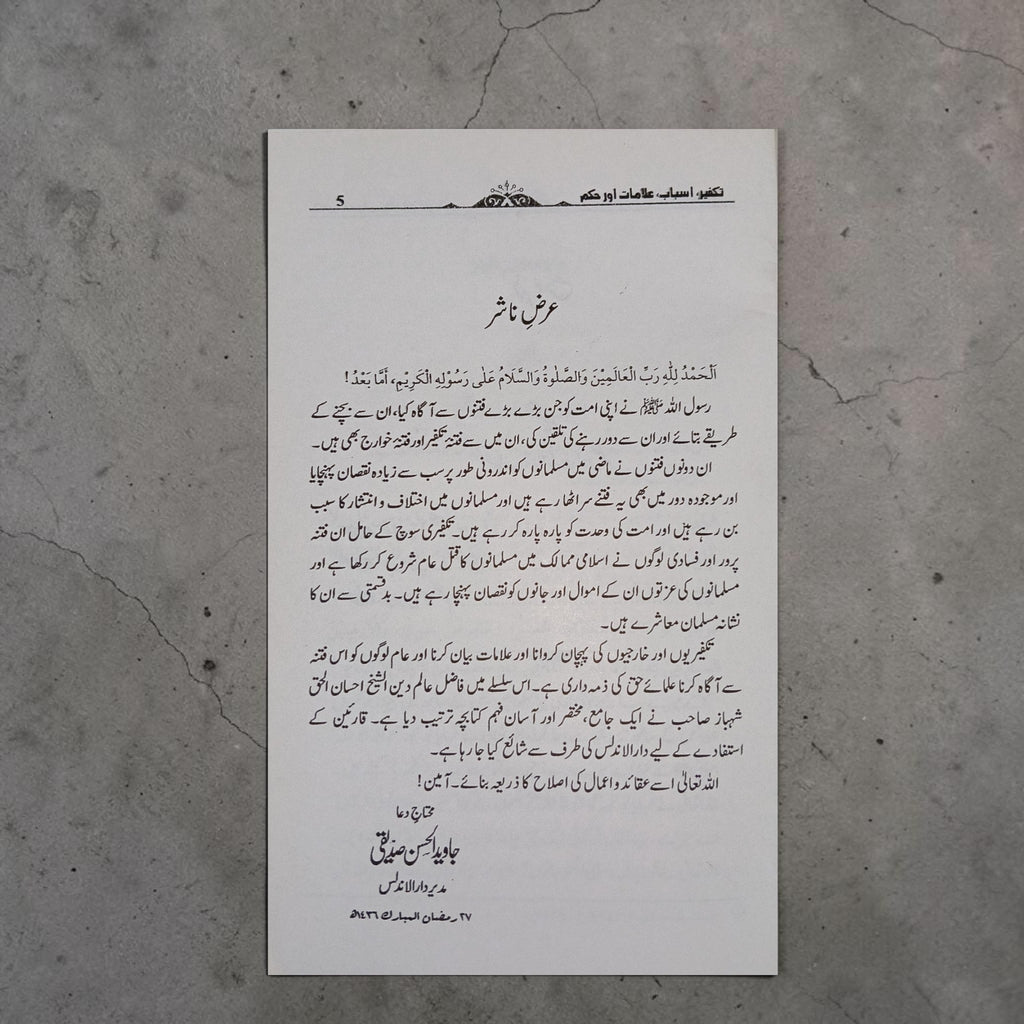 تکفیر، اسباب، علامات اور حکم 5
عرضِ ناشر
اَلْحَمْدُ لِلّٰهِ رَبِّ الْعَالَمِيْنَ وَالصَّلٰوةُ وَالسَّلَامُ عَلٰى رَسُوْلِهِ الْكَرِيْمِ، أَمَّا بَعْدُ!
رسول اللہ ﷺ نے اپنی امت کو جن بڑے بڑے فتنوں سے آگاہ کیا، ان سے بچنے کے
طریقے بتائے اور ان سے دور رہنے کی تلقین کی، ان میں سے فتنۂ تکفیر اور فتنۂ خوارج بھی ہیں۔
ان دونوں فتنوں نے ماضی میں مسلمانوں کو اندرونی طور پر سب سے زیادہ نقصان پہنچایا
اور موجودہ دور میں بھی یہ فتنے سر اٹھا رہے ہیں اور مسلمانوں میں اختلاف و انتشار کا سبب
بن رہے ہیں اور امت کی وحدت کو پارہ پارہ کر رہے ہیں۔ تکفیری سوچ کے حامل ان فتنہ
پرور اور فسادی لوگوں نے اسلامی ممالک میں مسلمانوں کا قتل عام شروع کر رکھا ہے اور
مسلمانوں کی عزتوں ان کے اموال اور جانوں کو نقصان پہنچا رہے ہیں۔ بدقسمتی سے ان کا
نشانہ مسلمان معاشرے ہیں۔
تکفیریوں اور خارجیوں کی پہچان کروانا اور علامات بیان کرنا اور عام لوگوں کو اس فتنہ
سے آگاہ کرنا علمائے حق کی ذمہ داری ہے۔ اس سلسلے میں فاضل عالم دین الشیخ احسان الحق
شہباز صاحب نے ایک جامع، مختصر اور آسان فہم کتابچہ ترتیب دیا ہے۔ قارئین کے
استفادے کے لیے دارالاندلس کی طرف سے شائع کیا جا رہا ہے۔
اللہ تعالیٰ اسے عقائد و اعمال کی اصلاح کا ذریعہ بنائے۔ آمین!
محتاجِ دعا
جاوید الحسن صدیقی
مدیر دارالاندلس
۲۷ رمضان المبارک ۱۴۳۶ھ